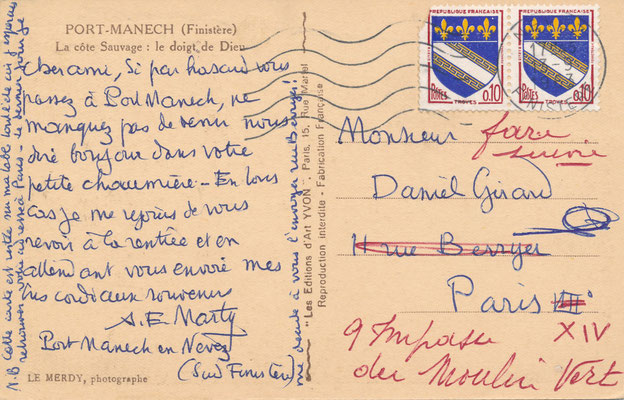 PORT-MANECH (Finistère)
La côte Sauvage : le doigt de Dieu
Cher ami, Si par hasard vous
passez à Port Manech, ne
manquez pas de venir nous
dire bonjour dans votre
petite chaumière - En tous
cas je me rejouis de vous
revoir à la rentrée et en
attendant vous envoie mes
très cordiaux souvenirs
A.E Marty
Port Manech en Nevez
(Sud Finistère)
LE MERDY, photographe
N.B Cette carte est restée sur ma table
retrouver votre adresse à Paris - le dernier jour je
me décide à vous l'envoyer rue Berryer!
"Les Editions d'Art YVON", Paris, 15, Rue Martel
Reproduction interdite - Fabrication Française
REPUBLIQUE FRANÇAISE
POSTES
0,10
TROYES
REPUBLIQUE FRANÇAISE
POSTES
0,10
TROYES
FINISTERE
Monsieur faire
suivre
Daniel Girard
rue Berryer
Paris
XIV
9 Impasse
du Moulin Vert